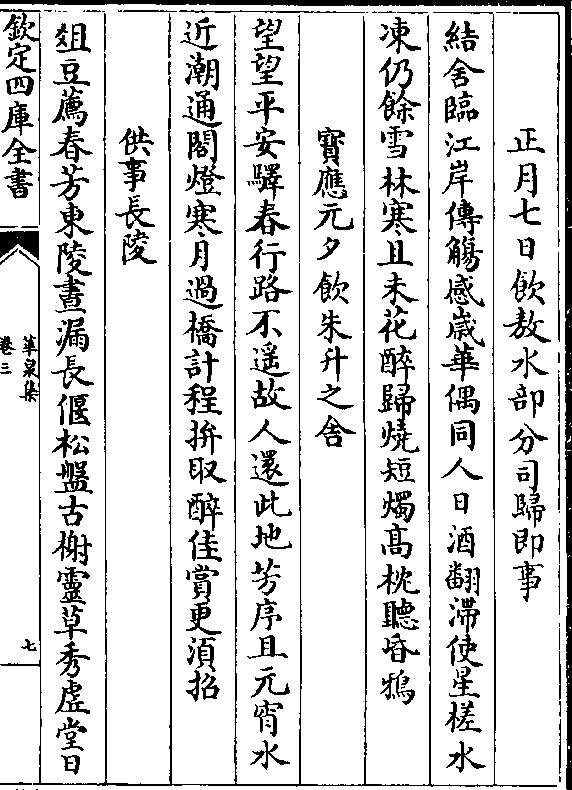 正月七日飲敖水部分司歸即事
結舍臨江岸傳觴感歲華偶同人日酒翻滯使星槎水
凍仍餘雪林寒且未花醉歸燒短燭高枕聽昏鴉
寶應元夕飲朱升之舍
望望平安驛春行路不遥故人還此地芳序且元宵水
近潮通閣燈寒月過橋計程拚取醉佳賞更湏招
供事長陵
俎豆薦春芳東陵晝漏長偃松盤古榭靈草秀虛堂日
欽定四庫全書
華泉集
卷三
七